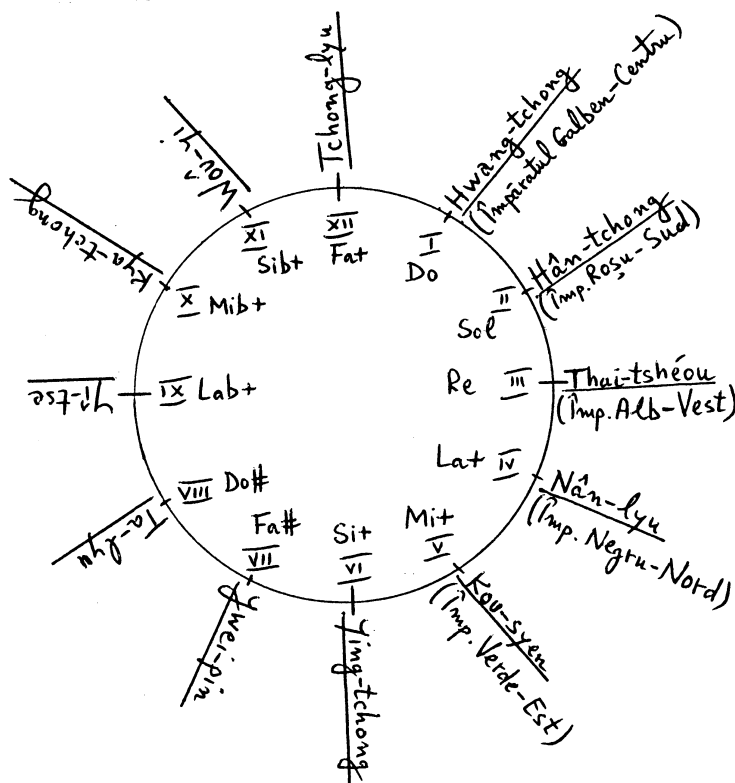 I
Do
Hwang-tchong
(Împăratul Galben-Centru)
II
Sol
Hân-tchong
(Împ. Roşu-Sud)
III
Re
Thai-tshéou
(Împ. Alb-Vest)
IV
La+
Nân-lyu
(Împ. Negru-Nord)
V
Mi+
Kou-syen
(Împ. Verde-Est)
VI
Si+
Ying-tchong
VII
Fa#
Ywei-pin
VIII
Do#
Ta-lyu
IX
Lab+
Yî-tse
X
Mib+
Kya-tchong
XI
Sib+
Wôu-yi
XII
Fa+
Tchong-lyu